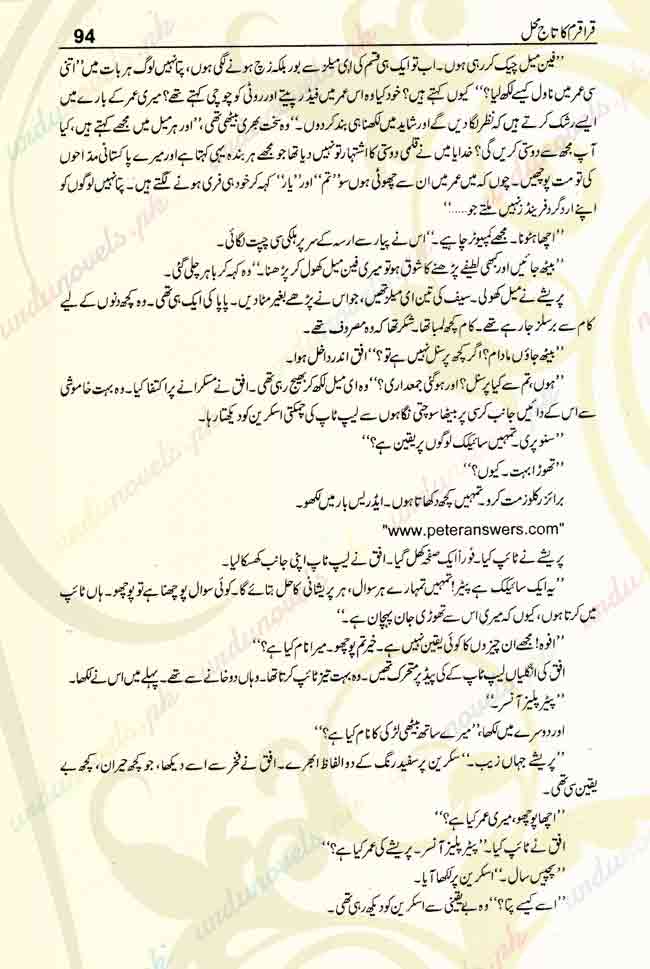 قراقرم کا تاج محل
94
’’فین میل چیک کر رہی ہوں۔ اب تو ایک ہی قسم کی ای میلز سے بور بلکہ زچ ہونے لگی ہوں، پتا نہیں لوگ ہر بات میں ’’اتنی
سی عمر میں ناول کیسے لکھ لیا؟‘‘ کیوں کہتے ہیں؟ خود کیا وہ اس عمر میں فیڈر پیتے اور روٹی کو چوچی کہتے تھے؟ میری عمر کے بارے میں
ایسے رشک کرتے ہیں کہ نظر لگا دیں گے اور شاید میں لکھنا ہی بند کر دوں۔‘‘ وہ سخت بھری بیٹھی تھی، ’’اور ہر میل میں مجھے کہتے ہیں، کیا
آپ مجھ سے دوستی کریں گی؟ خدایا میں نے قلمی دوستی کا اشتہار تو نہیں دیا تھا جو مجھے ہر بندہ یہی کہتا ہے اور میرے پاکستانی مدّاحوں
کی تو مت پوچھیں۔ چوں کہ میں عمر میں ان سے چھوٹی ہوں سو ’’تم‘‘ اور ’’یار‘‘ کہہ کر خود ہی فری ہونے لگتے ہیں۔ پتا نہیں لوگوں کو
اپنے ارد گرد فرینڈز نہیں ملتے جو.....‘‘
’’اچھا ہٹو نا۔ مجھے کمپیوٹر چاہیے۔‘‘ اس نے پیار سے ارسہ کے سر پر ہلکی سی چپت لگائی۔
’’بیٹھ جائیں اور کبھی لطیفے پڑھنے کا شوق ہو تو میری فین میل کھول کر پڑھنا۔‘‘ وہ کہہ کر باہر چلی گئی۔
پریشے نے میل کھولی۔ سیف کی تین ای میلز تھیں، جو اس نے پڑھے بغیر مٹا دیں۔ پاپا کی ایک ہی تھی۔ وہ کچھ دنوں کے لیے
کام سے برسلز جا رہے تھے۔ کام کچھ لمبا تھا۔ شکر تھا کہ وہ مصروف تھے۔
’’بیٹھ جاؤں مادام؟ اگر کچھ پرسنل نہیں ہے تو؟‘‘ افق اندر داخل ہوا۔
’’ہوں، تم سے کیا پرسنل؟ اور ہو گئی جمعداری؟‘‘ وہ ای میل لکھ کر بھیج رہی تھی۔ افق نے مسکرانے پر اکتفا کیا۔ وہ بہت خاموشی
سے اس کے دائیں جانب کرسی پر بیٹھا سوچتی نگاہوں سے لیپ ٹاپ کی چمکتی اسکرین کو دیکھتا رہا۔
’’سنو پری۔ تمہیں سائیکک لوگوں پر یقین ہے؟‘‘
’’تھوڑا بہت۔ کیوں؟‘‘
براؤزر کلوز مت کرو۔ تمہیں کچھ دکھاتا ہوں۔ ایڈریس بار میں لکھو۔
"www.peteranswers.com"
پریشے نے ٹائپ کیا۔ فوراً ایک صفحہ کھل گیا۔ افق نے لیپ ٹاپ اپنی جانب کھسکا لیا۔
’’یہ ایک سائیکک ہے پیٹر! تمہیں تمہارے ہر سوال، ہر پریشانی کا حل بتائے گا۔ کوئی سوال پوچھنا ہے تو پوچھو۔ ہاں ٹائپ
میں کرتا ہوں، کیوں کہ میری اس سے تھوڑی جان پہچان ہے۔‘‘
’’افوہ! مجھے ان چیزوں کا کوئی یقین نہیں ہے۔ خیر تم پوچھو۔ میرا نام کیا ہے؟‘‘
افق کی انگلیاں لیپ ٹاپ کے کی پیڈ پر متحرک تھیں۔ وہ بہت تیز ٹائپ کرتا تھا۔ وہاں دو خانے سے تھے۔ پہلے میں اس نے لکھا۔
’’پیٹر پلیز آنسر۔‘‘
اور دوسرے میں لکھا، ’’میرے ساتھ بیٹھی لڑکی کا نام کیا ہے؟‘‘
’’پریشے جہاں زیب۔‘‘ سکرین پر سفید رنگ کے دو الفاظ ابھرے۔ افق نے فخر سے اسے دیکھا، جو کچھ حیران، کچھ بے
یقین سی تھی۔
’’اچھا پوچھو، میری عمر کیا ہے؟‘‘
افق نے ٹائپ کیا۔ ’’پیٹر پلیز آنسر۔ پریشے کی عمر کیا ہے؟‘‘
’’پچیس سال۔‘‘ اسکرین پر لکھا آیا۔
’’اسے کیسے پتا؟‘‘ وہ بے یقینی سے اسکرین کو دیکھ رہی تھی۔
urdunovels.pk